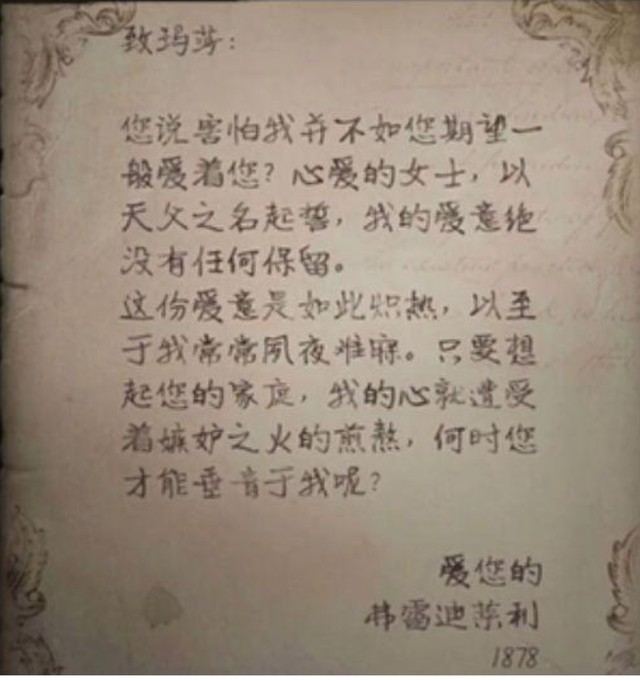 致玛莎：
您说害怕我并不如您期望一
般爱着您？心爱的女士，以
天父之名起誓，我的爱意绝
没有任何保留。
这份爱意是如此炽热，以至
于我常常夙夜难寐。只要想
起您的家庭，我的心就遭受
着嫉妒之火的煎熬，何时您
才能垂音于我呢？
爱您的
弗雷迪莱利
1878